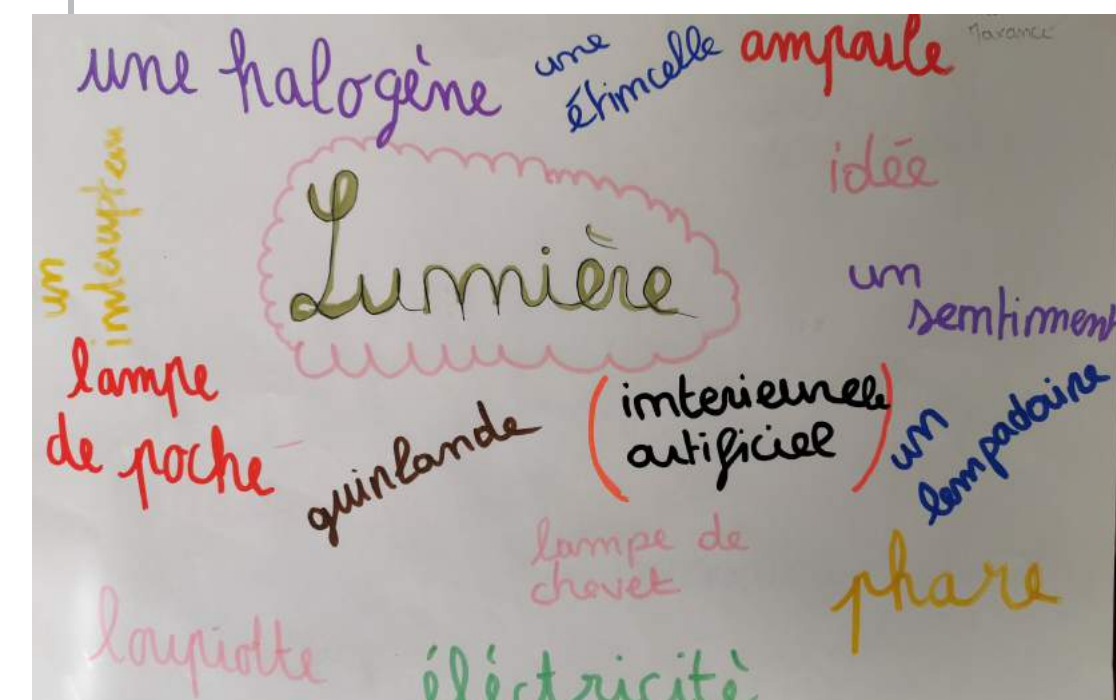 une halogène
une
étincelle
ampoule
idée
un
interrupteu
Lumière
un
sentiment
lampe
de poche
guirlande
(interieurele
artificiel)
un
lampadaire
lampe de
chevet
phare
loupiotte
éléctricitè